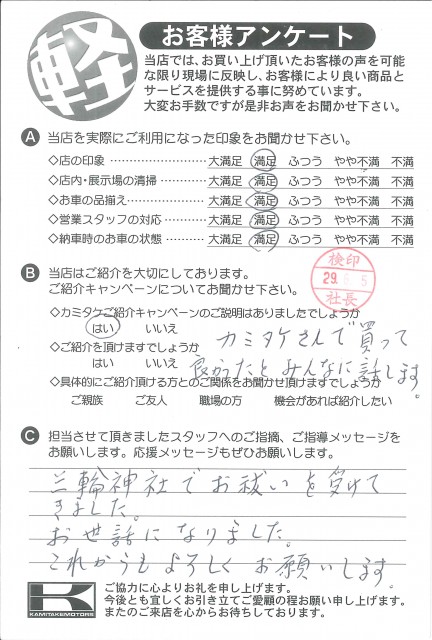 軽
お客様アンケート
当店では、お買い上げ頂いたお客様の声を可能
な限り現場に反映し、お客様により良い商品と
サービスを提供する事に努めています。
大変お手数ですが是非お声をお聞かせ下さい。
A 当店を実際にご利用になった印象をお聞かせ下さい。
◇店の印象 ………………… 大満足 満足 ふつう やや不満 不満
◇店内・展示場の清掃 ………… 大満足 満足 ふつう やや不満 不満
◇お車の品揃え ……………… 大満足 満足 ふつう やや不満 不満
◇営業スタッフの対応 ………… 大満足 満足 ふつう やや不満 不満
◇納車時のお車の状態 ………… 大満足 満足 ふつう やや不満 不満
検印
29. 5
社長
B 当店はご紹介を大切にしております。
ご紹介キャンペーンについてお聞かせ下さい。
◇カミタケご紹介キャンペーンのご説明はありましたでしょうか
はい いいえ
カミタケさんで買って
◇ご紹介を頂けますでしょうか
良かったとみんなに話します。
はい いいえ
◇具体的にご紹介頂ける方とのご関係をお聞かせ頂けますでしょうか
ご親族 ご友人 職場の方 機会があれば紹介したい
C 担当させて頂きましたスタッフへのご指摘、ご指導メッセージを
お願いします。応援メッセージもぜひお願いします。
三輪神社でお祓いを受けて
きました。
お世話になりました。
これからもよろしくお願いします。
K
KAMITAKEMOTORS
ご協力に心よりお礼を申し上げます。
今後とも宜しくお引き立てご愛顧の程お願い申し上げます。
またのご来店を心からお待ちしております。